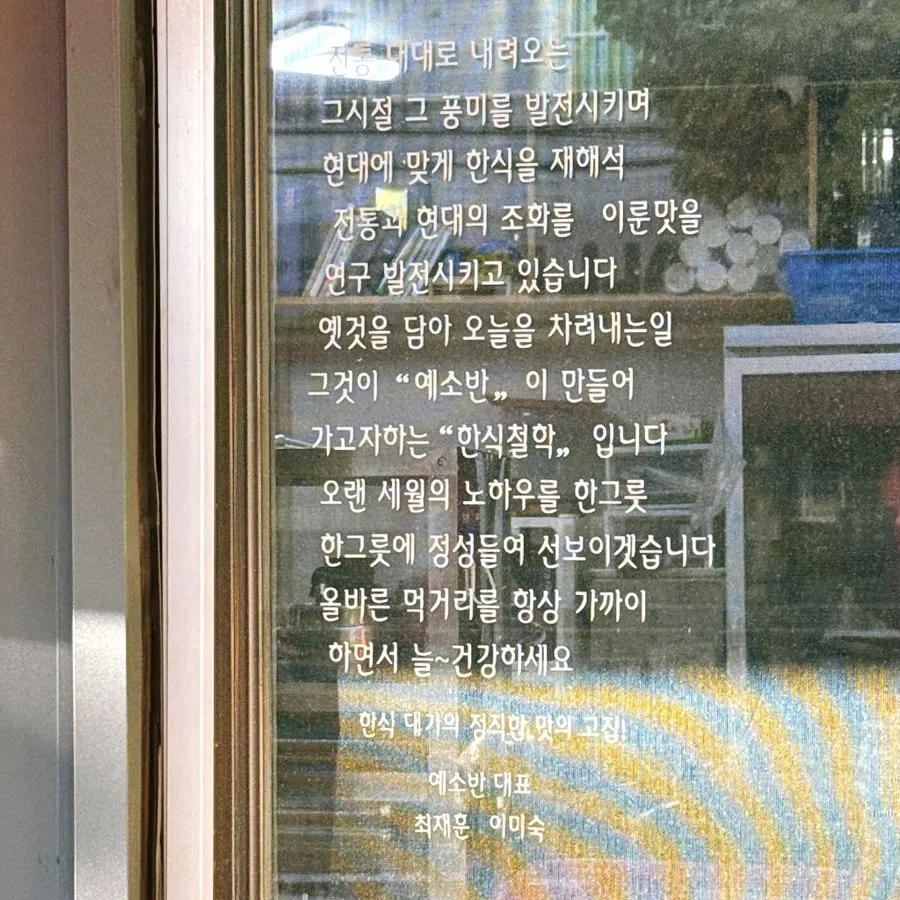 전통 대대로 내려오는
그시절 그 풍미를 발전시키며
현대에 맞게 한식을 재해석
전통과 현대의 조화를 이룬맛을
연구 발전시키고 있습니다
옛것을 담아 오늘을 차려내는일
그것이 “예소반„ 이 만들어
가고자하는 “한식철학„ 입니다
오랜 세월의 노하우를 한그릇
한그릇에 정성들여 선보이겟습니다
올바른 먹거리를 항상 가까이
하면서 늘~건강하세요
한식 대가의 정직한 맛의 고집!
예소반 대표
최재훈 이미숙